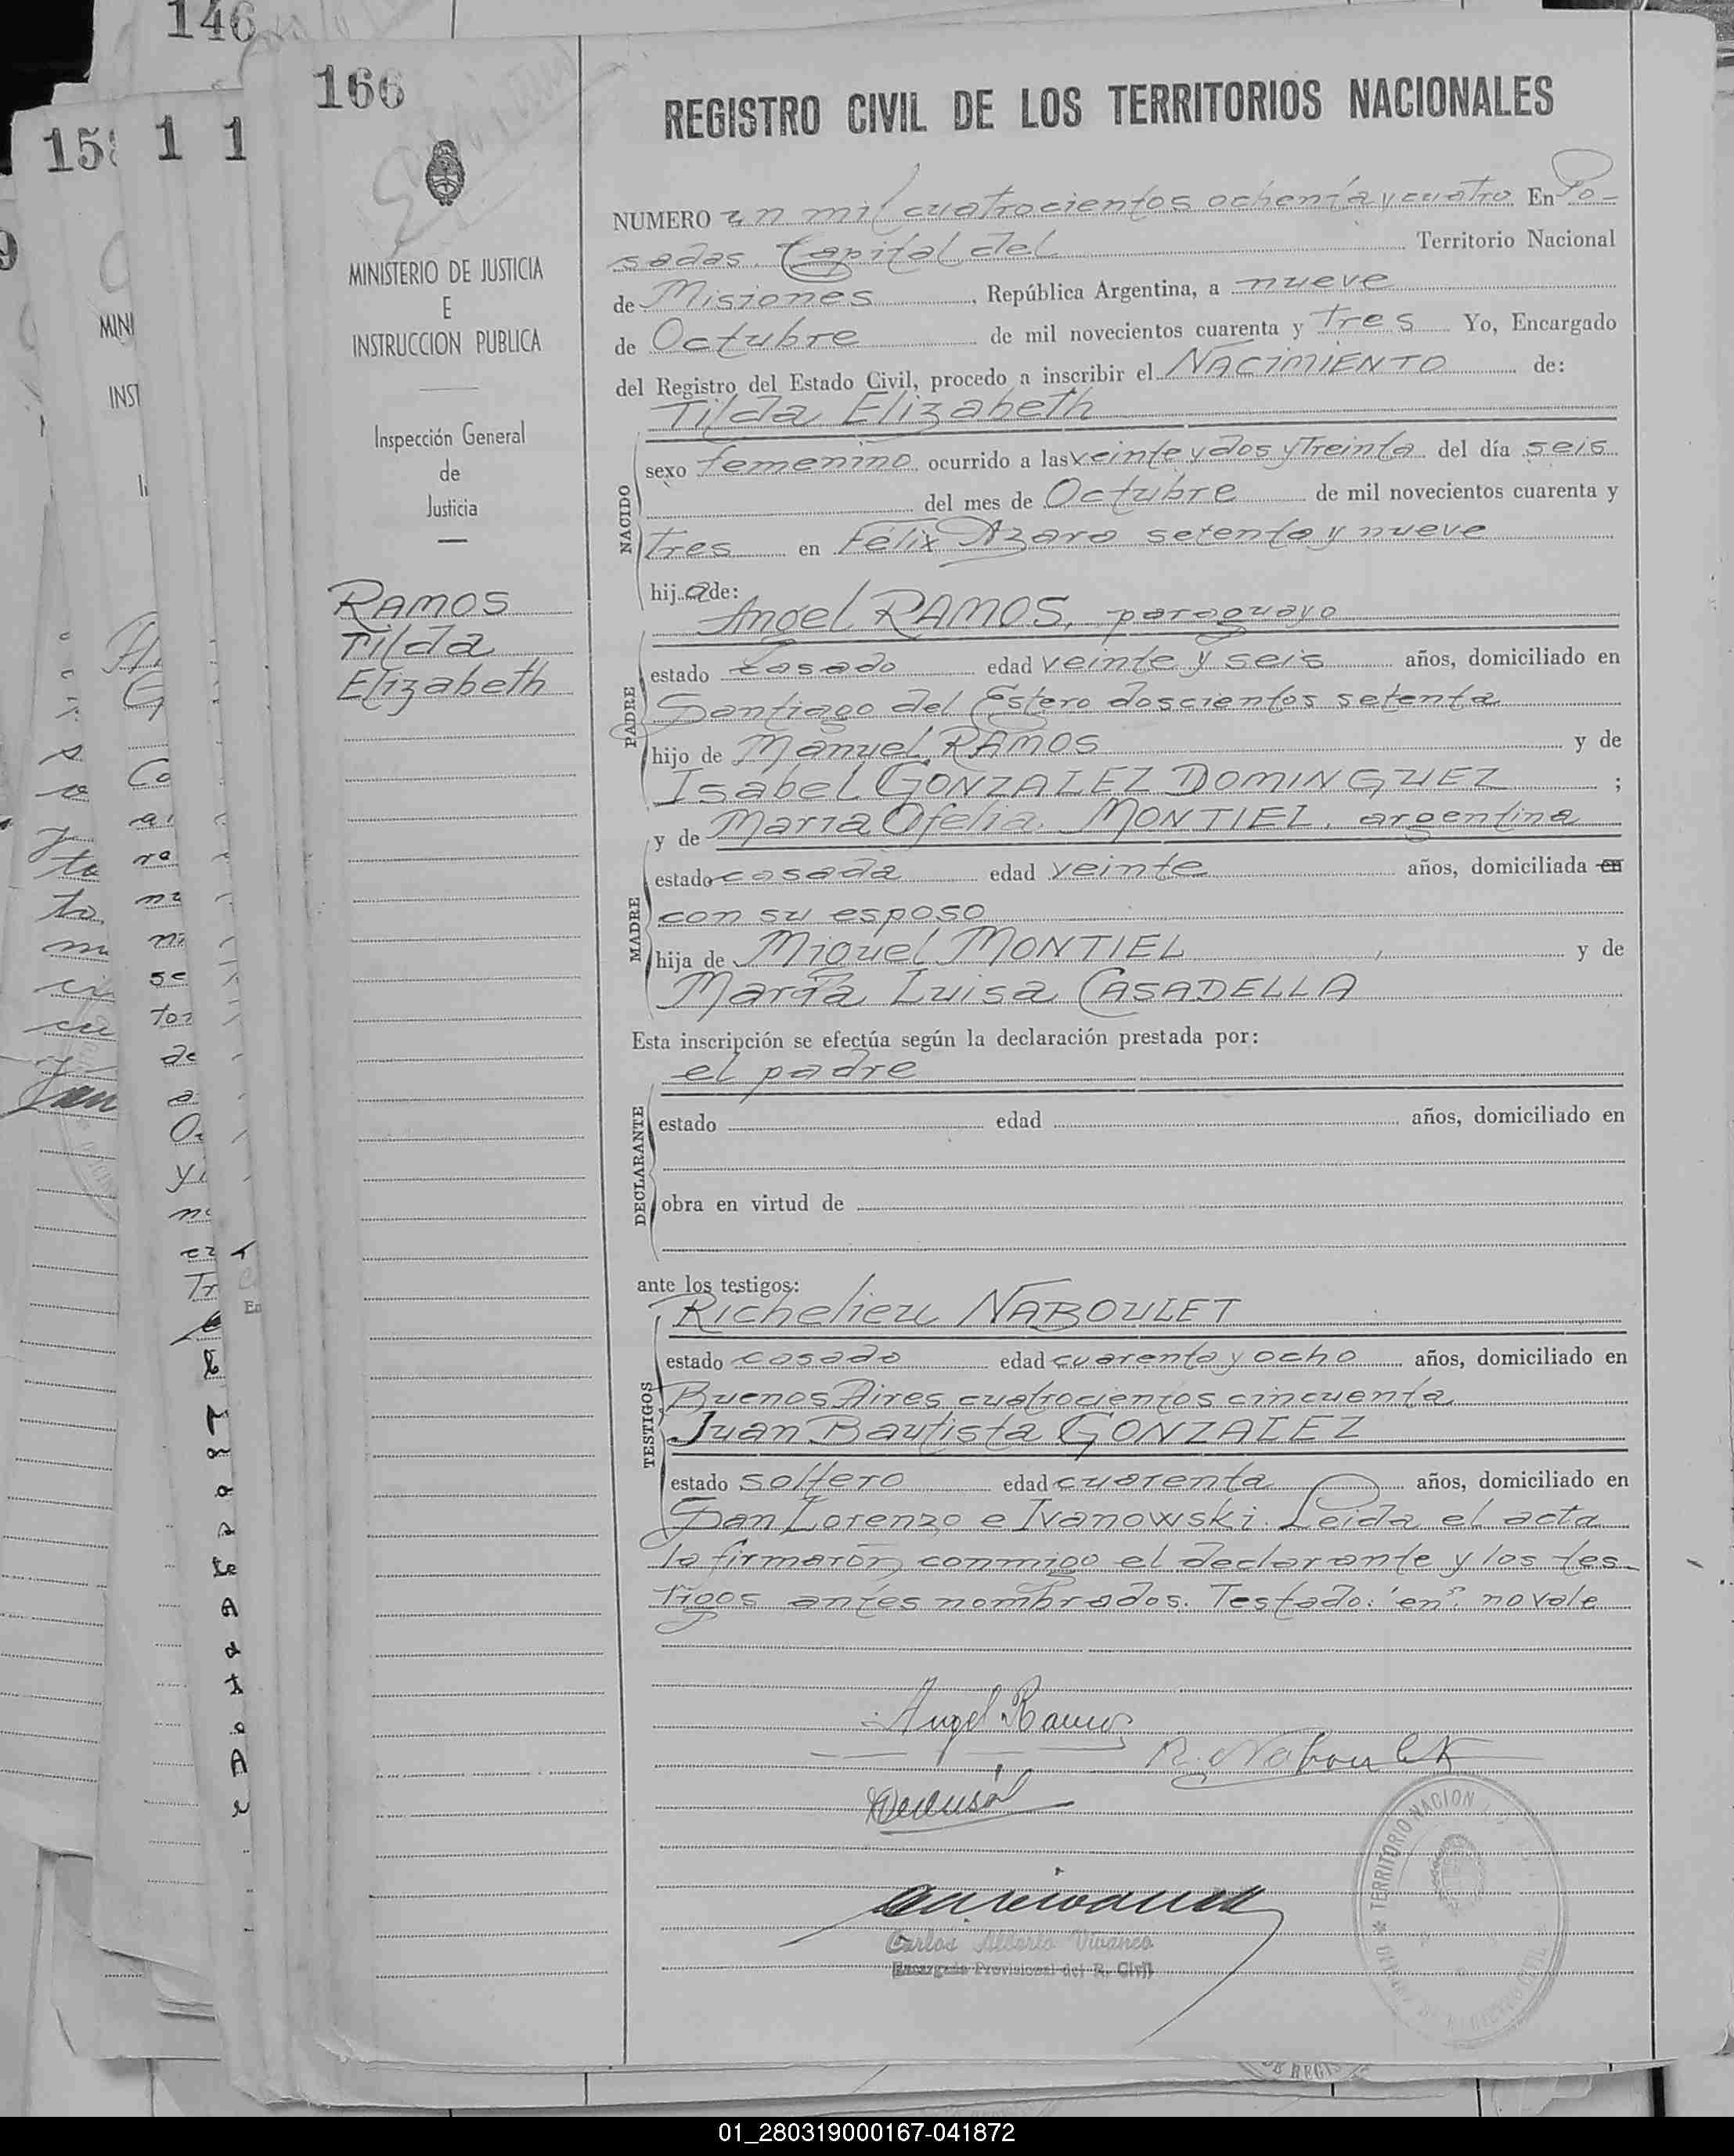 146
166
158
1
1
REGISTRO CIVIL DE LOS TERRITORIOS NACIONALES
MINISTERIO DE JUSTICIA
E
INSTRUCCION PUBLICA
Inspección General
de
Justicia
RAMOS
Tilda
Elizabeth
NUMERO un mil cuatrocientos ochenta y cuatro En Po-
sadas. Capital del Territorio Nacional
de Misiones, República Argentina, a nueve
de Octubre de mil novecientos cuarenta y tres Yo, Encargado
del Registro del Estado Civil, procedo a inscribir el NACIMIENTO de:
Tilda Elizabeth
NACIDO
sexo femenino ocurrido a las veinte y dos y Treinta del día seis
del mes de Octubre de mil novecientos cuarenta y
tres en Félix Azara setenta y nueve
hij a de:
Angel RAMOS, paraguayo
PADRE
estado casado edad veinte y seis años, domiciliado en
Santiago del Estero doscientos setenta
hijo de Manuel RAMOS y de
Isabel GONZALEZ DOMINGUEZ ;
y de María Ofelia MONTIEL, argentina
MADRE
estado casada edad veinte años, domiciliada en
con su esposo
hija de Miguel MONTIEL y de
María Luisa CASADELLA
Esta inscripción se efectúa según la declaración prestada por:
el padre
DECLARANTE
estado edad años, domiciliado en
obra en virtud de
ante los testigos:
Richelieu NABOULET
TESTIGOS
estado casado edad cuarenta y ocho años, domiciliado en
Buenos Aires cuatrocientos cincuenta
Juan Bautista GONZALEZ
estado soltero edad cuarenta años, domiciliado en
San Lorenzo e Ivanowski. Leída el acta
la firmarón conmigo el declarante y los tes-
tigos antes nombrados. Testado: "en": no vale
Angel Ramos
R. Naboulet
Carlos Alberto Vivanco
Encargado Provisional del R. Civil
TERRITORIO NACION
01_280319000167-041872